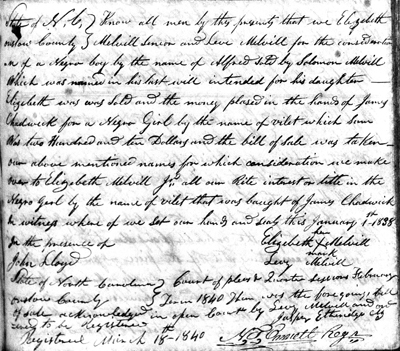 State of N. C. } Know all men by this presents that we Elizabeth
onslow County } Melvill Senior and Levi Melvill for the consideration
n of a Negro boy by the name of Alfred sold by Solomon Melvill
Which was named in his last will intended for his daughter
Elizabeth was was sold and the money plased in the hands of James
Chadwick for a Negro Girl by the name of vilet which Sum
Was two Hundred and ten Dollars and the bill of Sale was taken
our above mentioned names for which consideration we make
over to Elizabeth Melvill Jr. all our Rite interest or title in the
Negro Girl by the name of vilet that was baught of James Chadwick
in witness where of we Set our hands and seals this January 1st 1838
In the presence of Elizabeth her X mark Melvill
John Loyd Levy Melvill
State of North Carolina } Court of pleas & Quarter Sessions February
onslow County } Term 1840 Then was the foregoing bill
of sale acknowledged in open Court by Levy Melvill and
Jasper Etheridge
Registered March 18th 1840